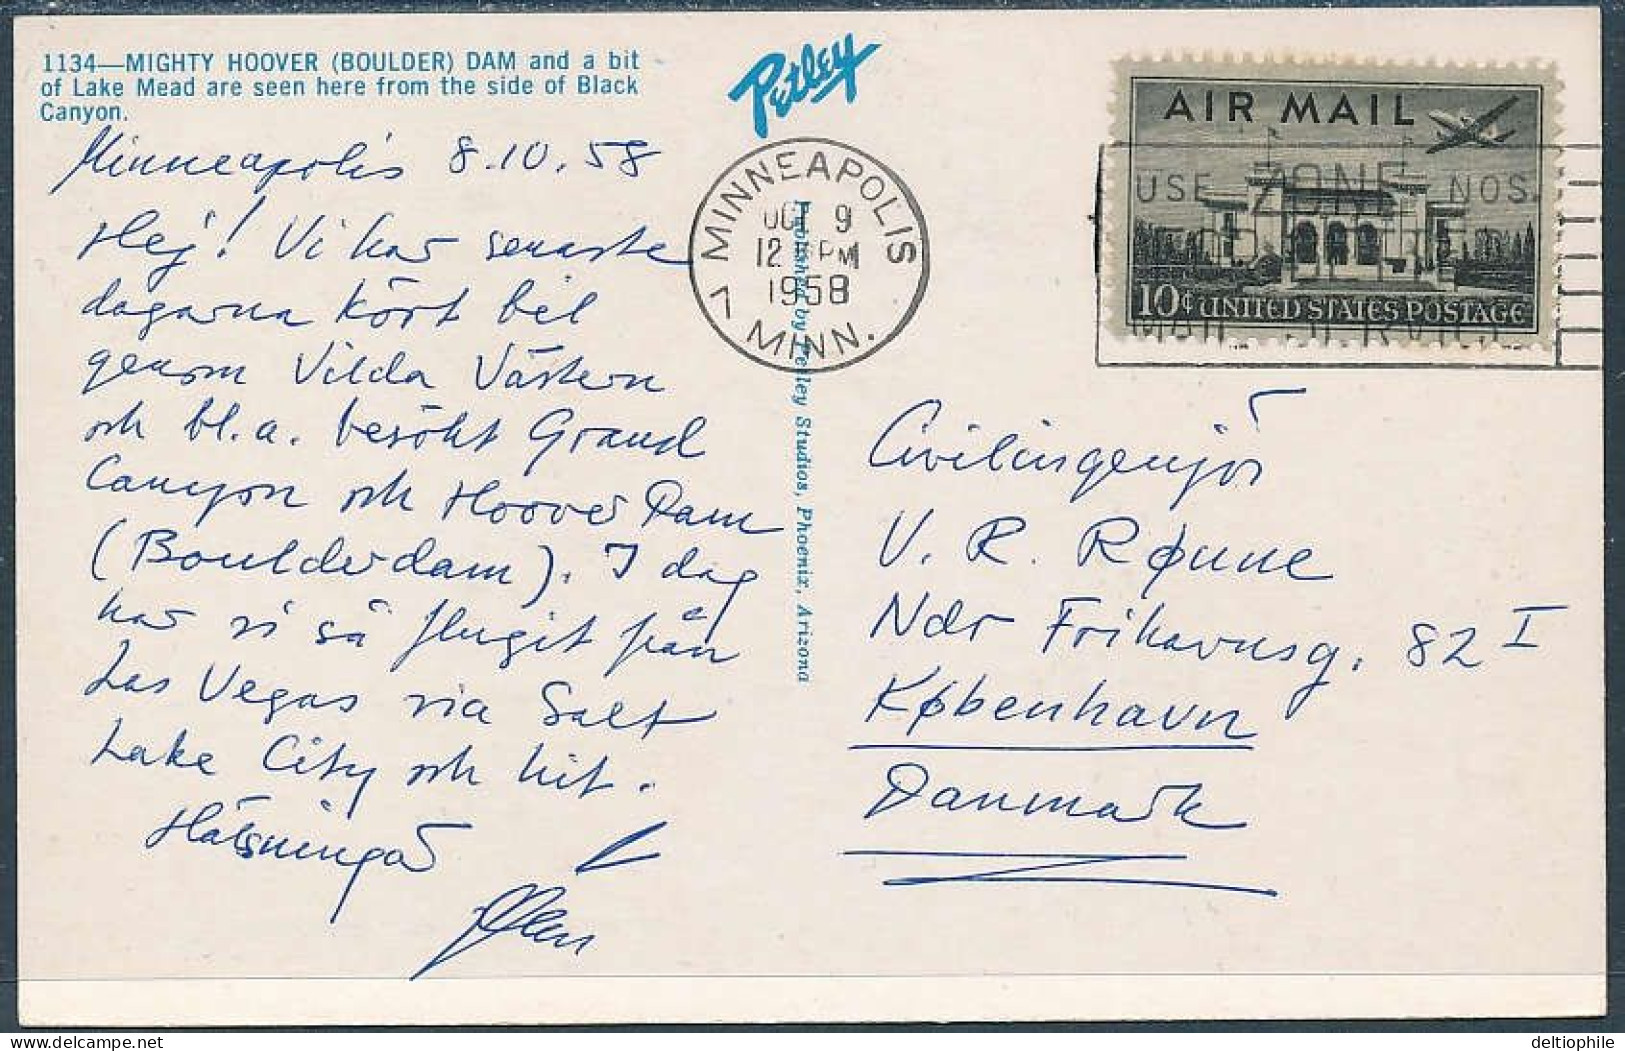 1134—MIGHTY HOOVER (BOULDER) DAM and a bit
of Lake Mead are seen here from the side of Black
Canyon.
Petley
Minneapolis 8.10.58
Hej! Vi har senaste
dagarna kört bil
genom Vilda Västern
och bl.a. besökt Grand
Canyon och Hoover Dam
(Boulderdam). I dag
har vi så flugit från
Las Vegas via Salt
Lake City och hit.
Hälsningar
Published by Petley Studios, Phoenix, Arizona
MINNEAPOLIS
OCT 9
12 PM
1958
7 MINN.
AIR MAIL
10¢ UNITED STATES POSTAGE
USE ZONE NOS.
FOR BETTER
MAIL SERVICE
Civilingenjör
V. R. Rønne
Ndr Frihavnsg. 82 I
København
Danmark
deltiophile